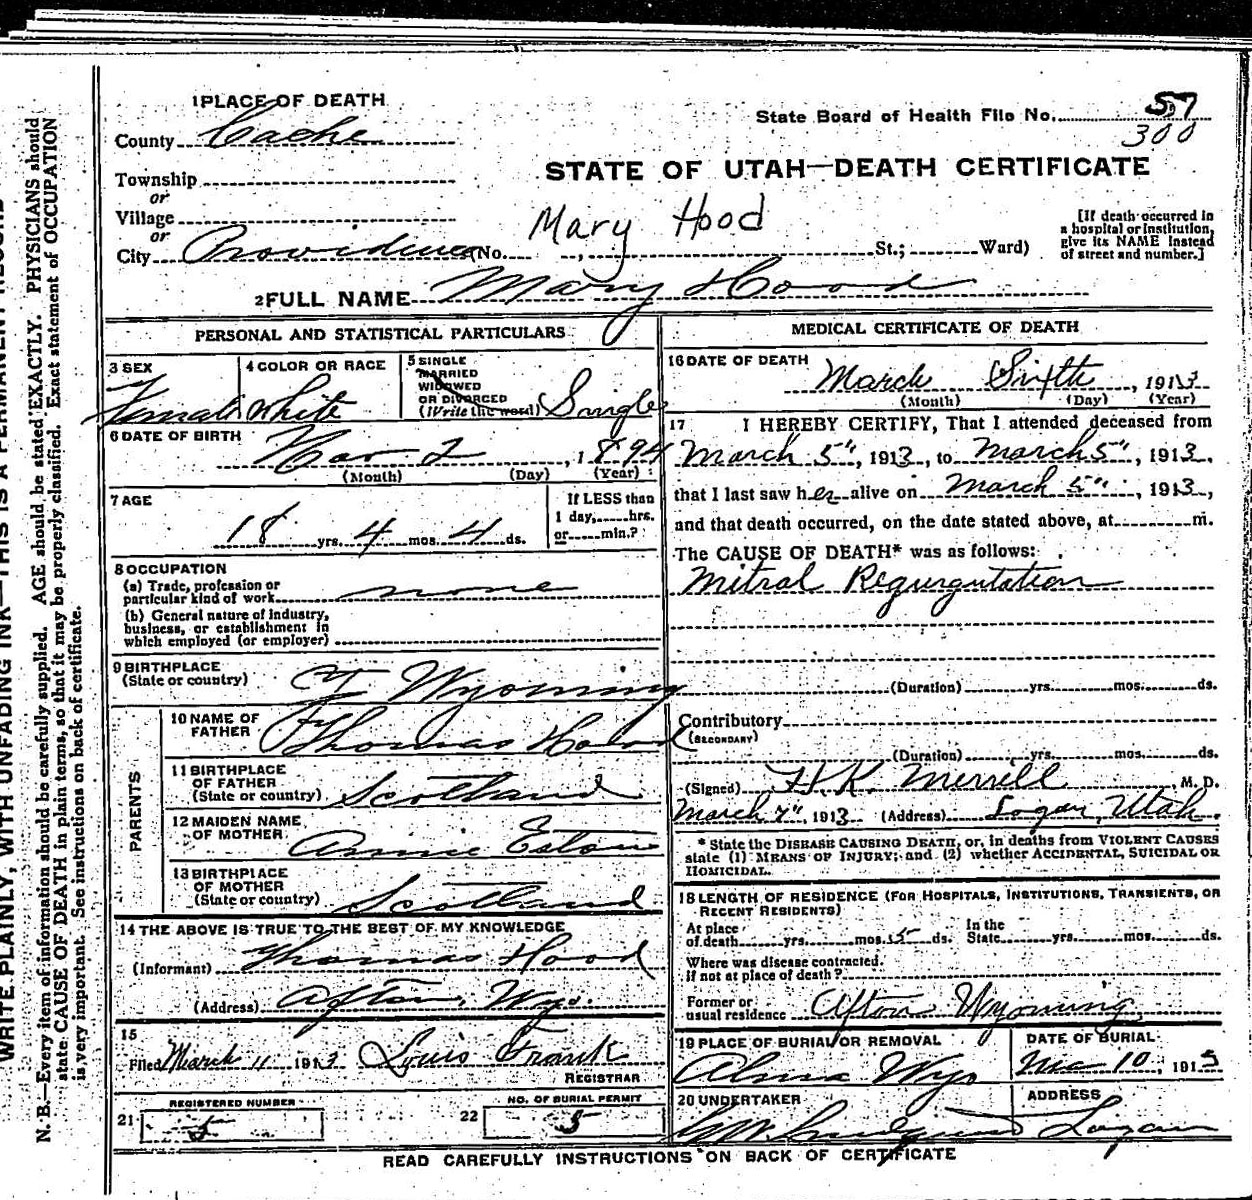 1 PLACE OF DEATH
County Cache
State Board of Health File No. 57
300
STATE OF UTAH—DEATH CERTIFICATE
Township
or
Village
or
City Providence (No. , St.; Ward)
Mary Hood
[If death occurred in
a hospital or institution,
give its NAME instead
of street and number.]
2 FULL NAME Mary Hood
PERSONAL AND STATISTICAL PARTICULARS
3 SEX
Female
4 COLOR OR RACE
White
5 SINGLE
MARRIED
WIDOWED
OR DIVORCED
(Write the word) Single
6 DATE OF BIRTH
Nov 2, 1894
(Month) (Day) (Year)
7 AGE
18 yrs. 4 mos. 4 ds.
If LESS than
1 day, hrs.
or min.?
8 OCCUPATION
(a) Trade, profession or
particular kind of work none
(b) General nature of industry,
business, or establishment in
which employed (or employer)
9 BIRTHPLACE
(State or country) Wyoming
PARENTS
10 NAME OF
FATHER Thomas Hood
11 BIRTHPLACE
OF FATHER
(State or country) Scotland
12 MAIDEN NAME
OF MOTHER Annie
13 BIRTHPLACE
OF MOTHER
(State or country) Scotland
14 THE ABOVE IS TRUE TO THE BEST OF MY KNOWLEDGE
(Informant) Thomas Hood
(Address) Afton, Wyo.
15
Filed March 11 1913 Louis Frank
REGISTRAR
REGISTERED NUMBER
21 5
NO. OF BURIAL PERMIT
22 5
MEDICAL CERTIFICATE OF DEATH
16 DATE OF DEATH
March Sixth, 1913
(Month) (Day) (Year)
17 I HEREBY CERTIFY, That I attended deceased from
March 5", 1913, to March 5", 1913.
that I last saw her alive on March 5", 1913,
and that death occurred, on the date stated above, at m.
The CAUSE OF DEATH* was as follows:
Mitral Regurgutation
(Duration) yrs. mos. ds.
Contributory
(SECONDARY)
(Duration) yrs. mos. ds.
(Signed) H. K. Merrell M. D.
March 7", 1913 (Address) Logan, Utah.
* State the DISEASE CAUSING DEATH, or, in deaths from VIOLENT CAUSES
state (1) MEANS OF INJURY; and (2) whether ACCIDENTAL, SUICIDAL OR
HOMICIDAL.
18 LENGTH OF RESIDENCE (FOR HOSPITALS, INSTITUTIONS, TRANSIENTS, OR
RECENT RESIDENTS)
At place
of death yrs. mos. 5 ds.
In the
State yrs. mos. ds.
Where was disease contracted.
if not at place of death?
Former or
usual residence Afton Wyoming
19 PLACE OF BURIAL OR REMOVAL
Wyo
DATE OF BURIAL
10, 1913
20 UNDERTAKER
ADDRESS
Logan
READ CAREFULLY INSTRUCTIONS ON BACK OF CERTIFICATE
WRITE PLAINLY, WITH UNFADING INK—THIS IS A PERMANENT RECORD
N. B.—Every item of information should be carefully supplied. AGE should be stated EXACTLY. PHYSICIANS should
state CAUSE OF DEATH in plain terms, so that it may be properly classified. Exact statement of OCCUPATION
is very important. See instructions on back of certificate.